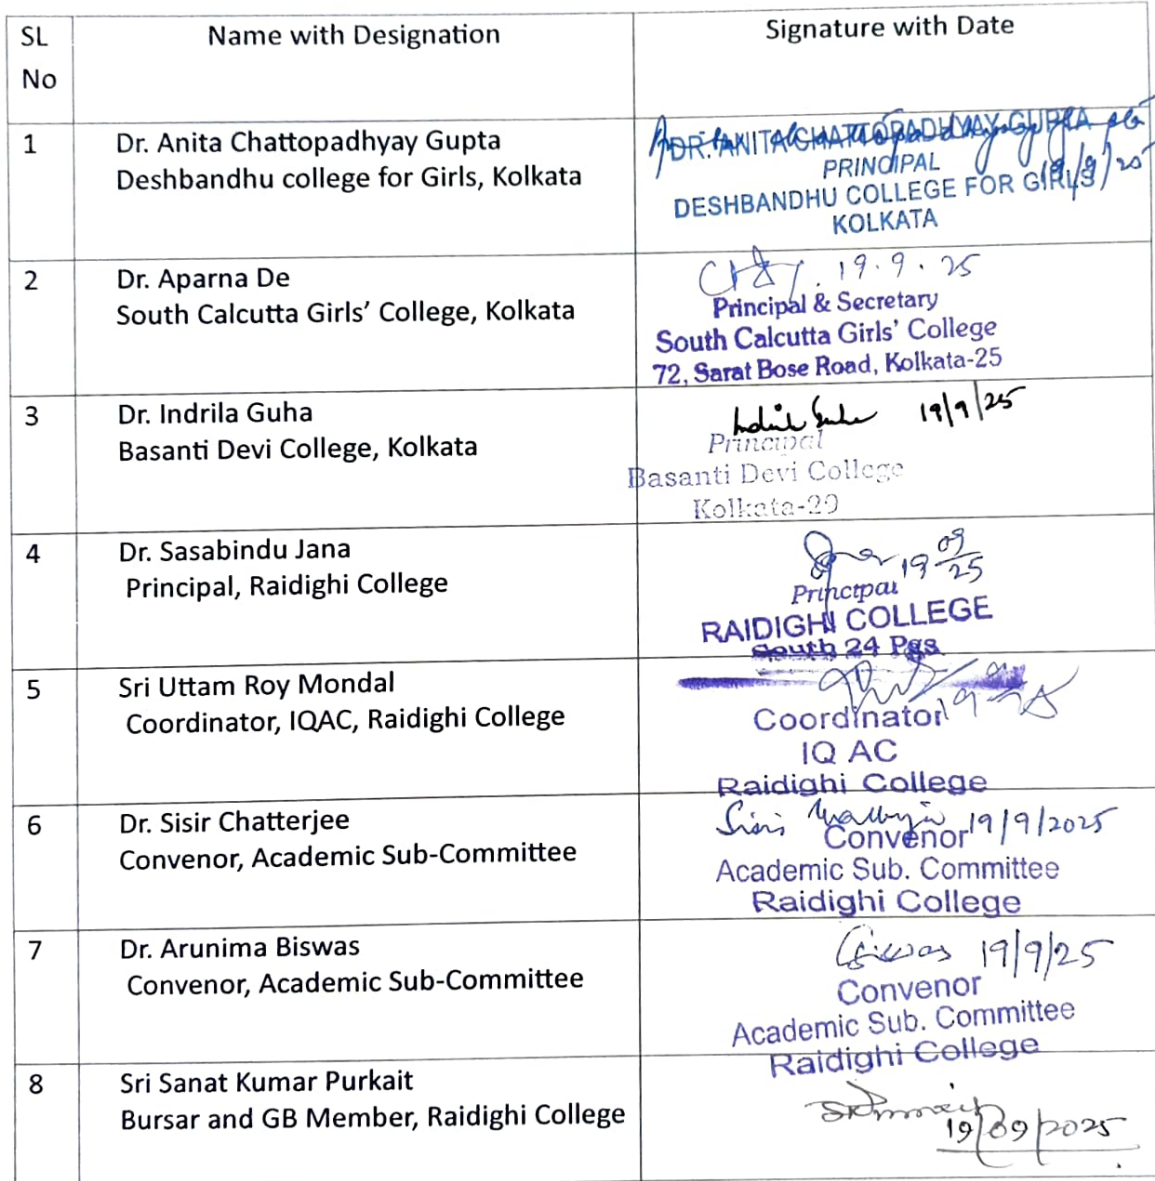 SL
No
Name with Designation
Signature with Date
1
Dr. Anita Chattopadhyay Gupta
Deshbandhu college for Girls, Kolkata
DR. ANITA CHATTOPADHYAY GUPTA
PRINCIPAL
DESHBANDHU COLLEGE FOR GIRLS
KOLKATA
19/9/25
2
Dr. Aparna De
South Calcutta Girls' College, Kolkata
19.9.25
Principal & Secretary
South Calcutta Girls' College
72, Sarat Bose Road, Kolkata-25
3
Dr. Indrila Guha
Basanti Devi College, Kolkata
Indrila Guha 19/9/25
Principal
Basanti Devi College
Kolkata-29
4
Dr. Sasabindu Jana
Principal, Raidighi College
19 09/25
Principal
RAIDIGHI COLLEGE
South 24 Pgs
5
Sri Uttam Roy Mondal
Coordinator, IQAC, Raidighi College
Coordinator
IQ AC
Raidighi College
6
Dr. Sisir Chatterjee
Convenor, Academic Sub-Committee
Sisir Chatterjee 19/9/2025
Convenor
Academic Sub. Committee
Raidighi College
7
Dr. Arunima Biswas
Convenor, Academic Sub-Committee
Biswas 19/9/25
Convenor
Academic Sub. Committee
Raidighi College
8
Sri Sanat Kumar Purkait
Bursar and GB Member, Raidighi College
19/09/2025